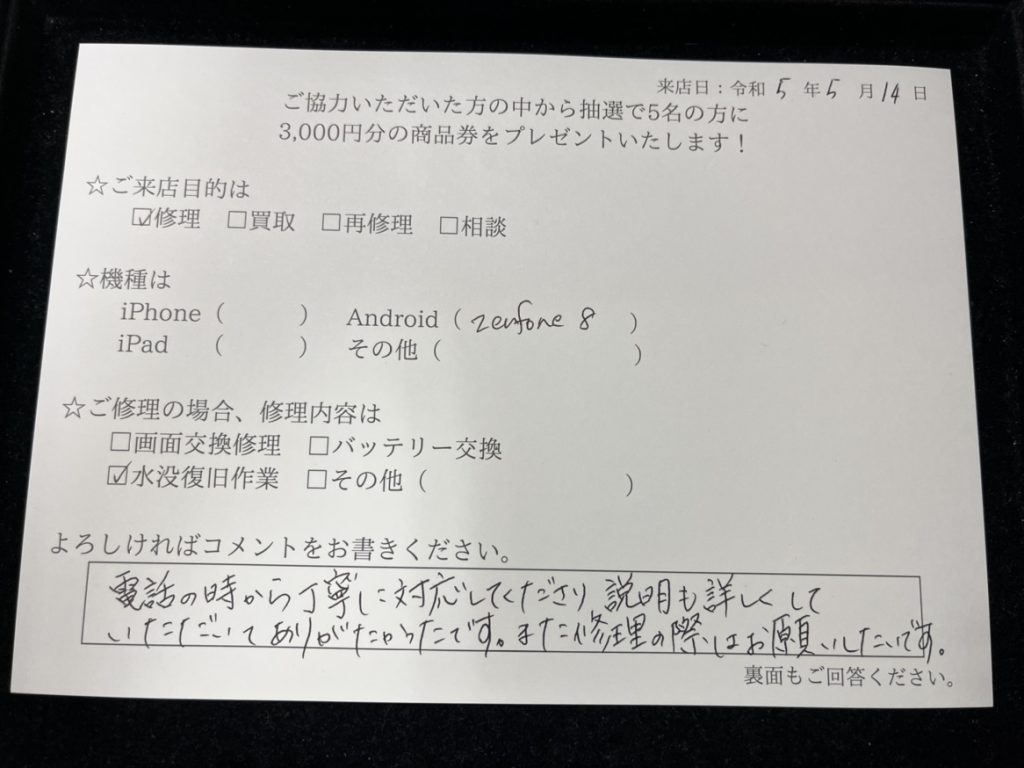 来店日：令和 5 年 5 月 14 日
ご協力いただいた方の中から抽選で5名の方に
3,000円分の商品券をプレゼントいたします！
☆ご来店目的は
☑修理 □買取 □再修理 □相談
☆機種は
iPhone（　　　） Android（ zenfone 8 ）
iPad （　　　） その他（　　　　　　　　）
☆ご修理の場合、修理内容は
□画面交換修理 □バッテリー交換
☑水没復旧作業 □その他（　　　　　　　　）
よろしければコメントをお書きください。
電話の時から丁寧に対応してくださり 説明も詳しくして
いただいてありがたかったです。また修理の際はお願いしたいです。
裏面もご回答ください。